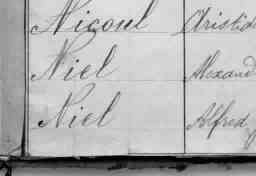 Nicoul Aristid
Niel Alexand
Niel Alfred